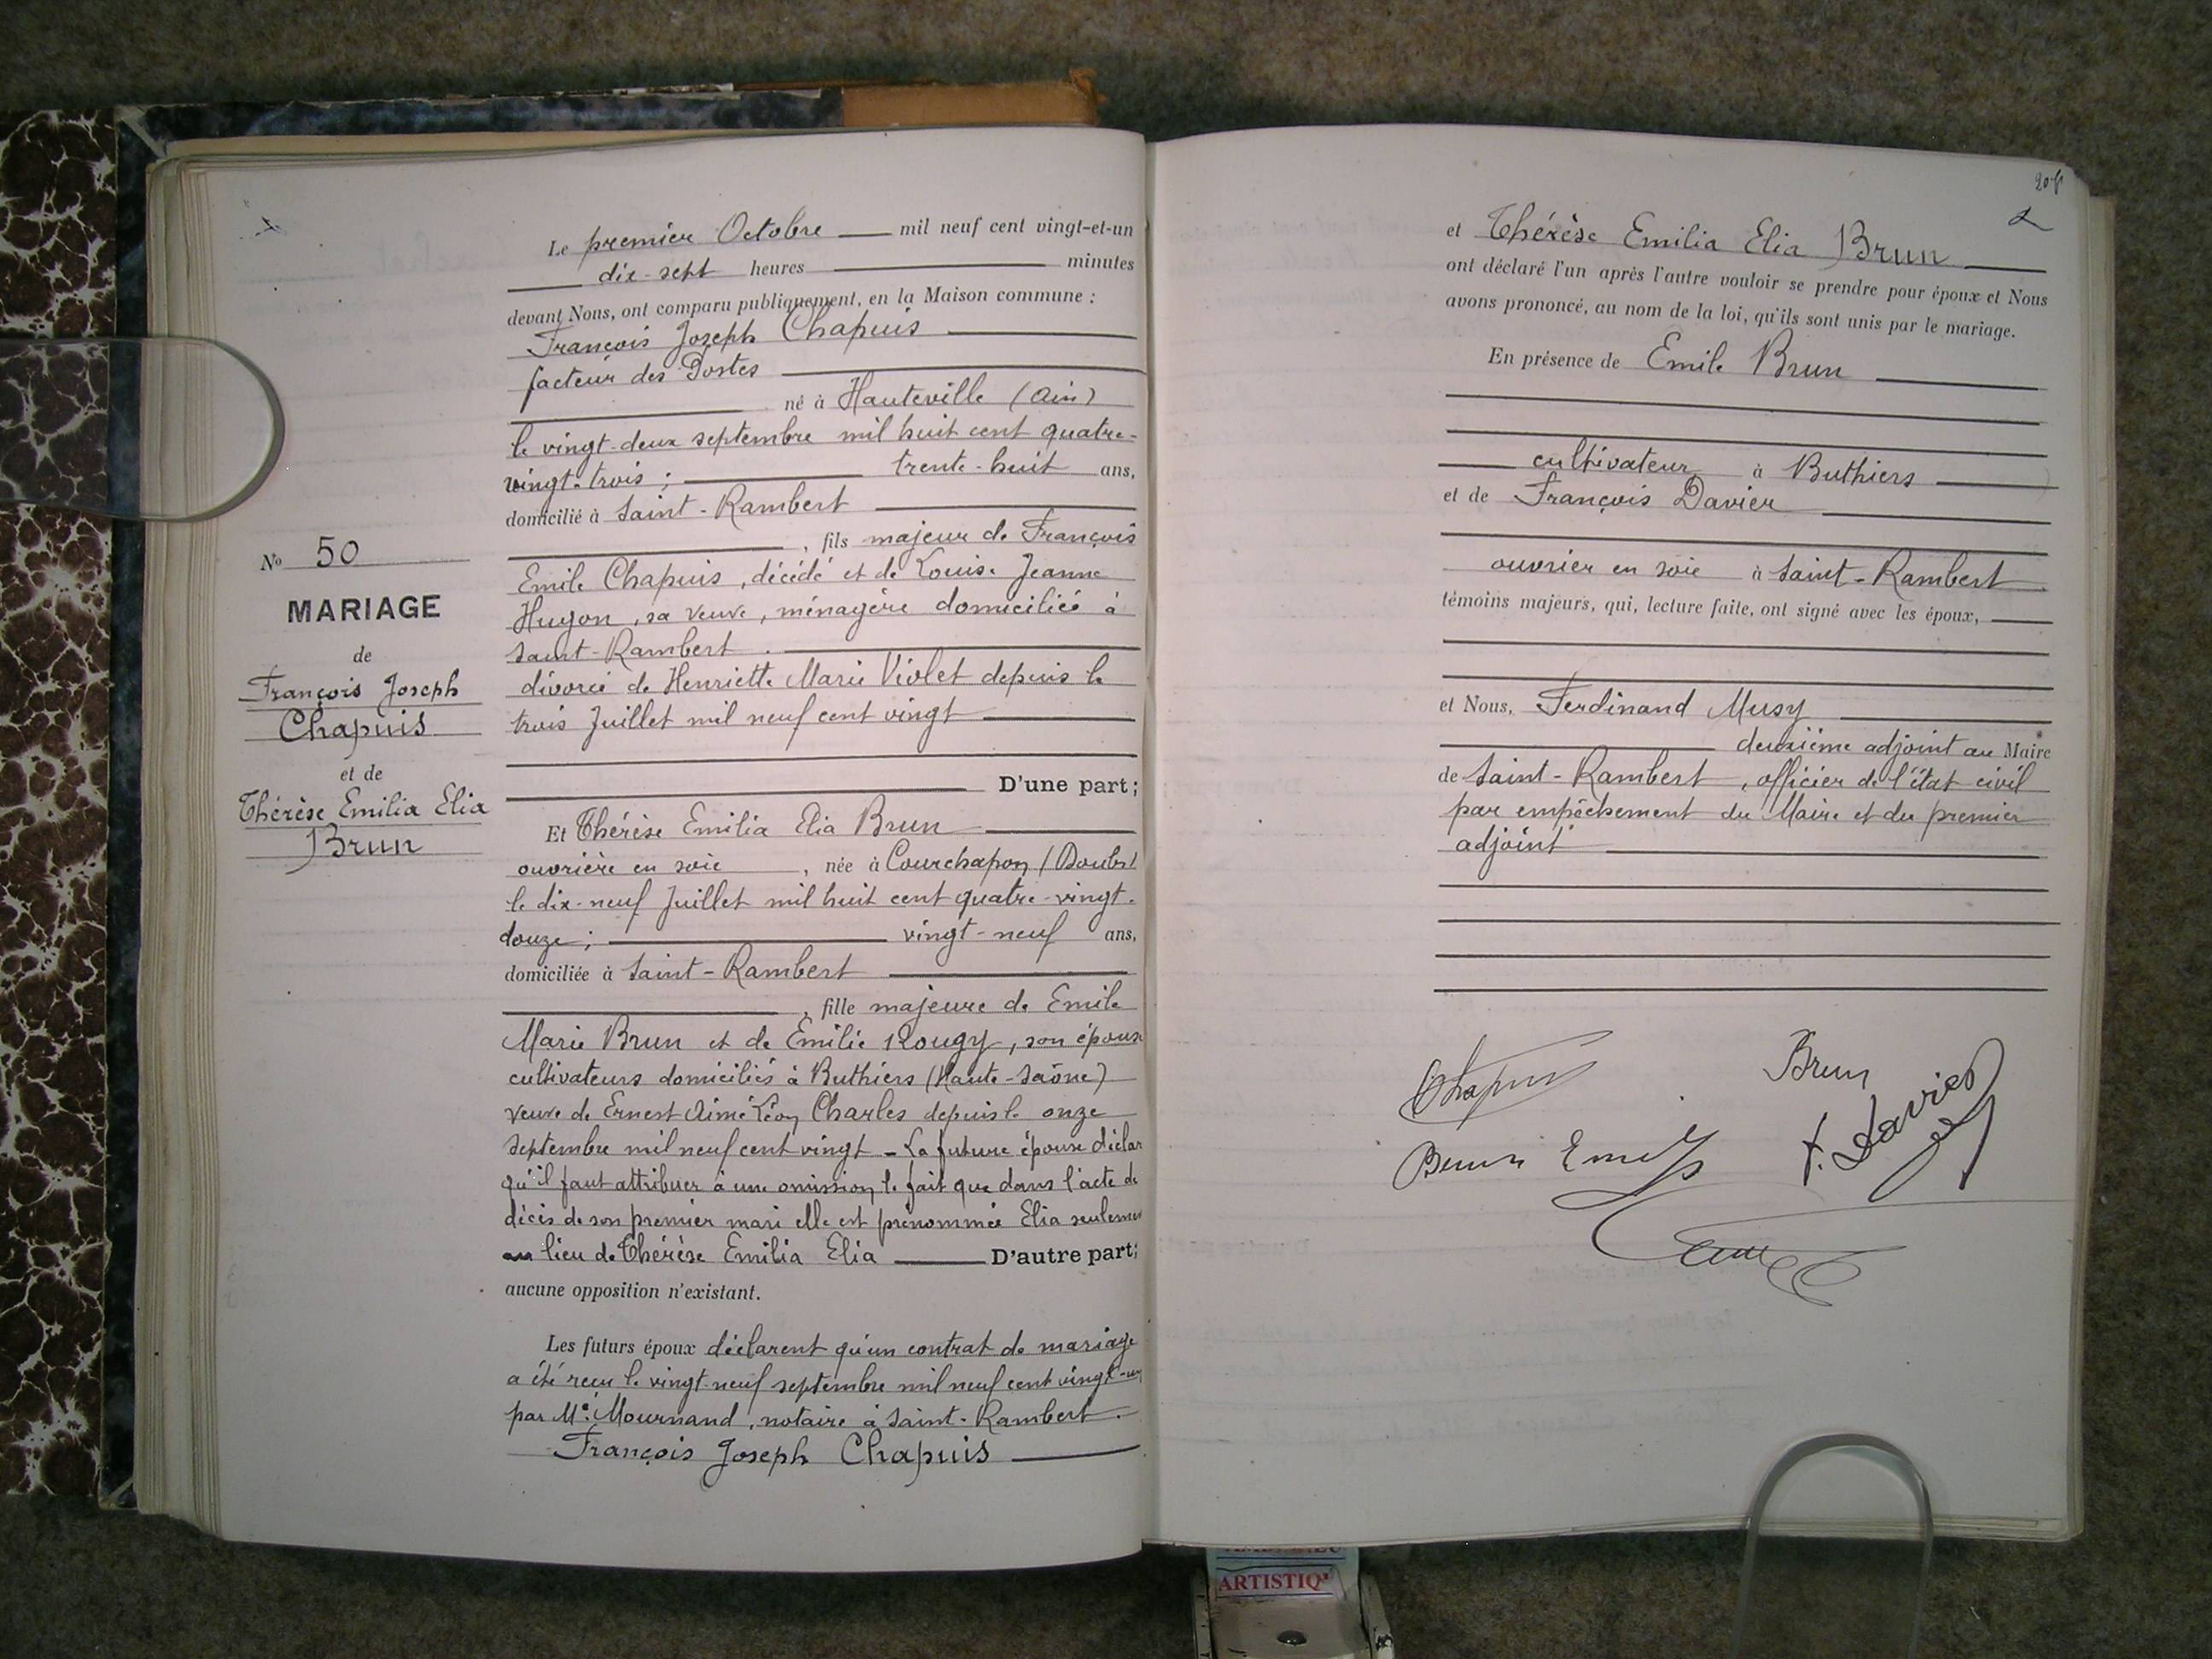 Le premier Octobre mil neuf cent vingt-et-un
dix-sept heures minutes
devant Nous, ont comparu publiquement, en la Maison commune :
François Joseph Chapuis
facteur des Postes
né à Hauteville (Ain)
le vingt-deux septembre mil huit cent quatre-
vingt-trois ; trente-huit ans,
domicilié à Saint-Rambert
, fils majeur de François
Emile Chapuis, décédé et de Louise Jeanne
Hugon, sa veuve, ménagère domiciliée à
Saint-Rambert.
divorcé de Henriette Marie Violet depuis le
trois Juillet mil neuf cent vingt
D'une part;
Et Thérèse Emilia Elia Brun
ouvrière en soie, née à Courchapon (Doubs)
le dix-neuf Juillet mil huit cent quatre-vingt-
douze ; vingt-neuf ans,
domiciliée à Saint-Rambert
, fille majeure de Emile
Marie Brun et de Emilie Rougy, son épouse
cultivateurs domiciliés à Buthiers (Haute-Saône)
veuve de Ernest Aimé Léon Charles depuis le onze
septembre mil neuf cent vingt - La future épouse déclar
qu'il faut attribuer à une omission le fait que dans l'acte de
décès de son premier mari elle est prénommée Elia seulemen
au lieu de Thérèse Emilia Elia D'autre part;
aucune opposition n'existant.
Les futurs époux déclarent qu'un contrat de mariage
a été reçu le vingt-neuf septembre mil neuf cent vingt-un
par Me Mournand, notaire à Saint-Rambert.
François Joseph Chapuis
No 50
MARIAGE
de
François Joseph
Chapuis
et de
Thérèse Emilia Elia
Brun
et Thérèse Emilia Elia Brun
ont déclaré l'un après l'autre vouloir se prendre pour époux et Nous
avons prononcé, au nom de la loi, qu'ils sont unis par le mariage.
En présence de Emile Brun
cultivateur à Buthiers
et de François Davier
ouvrier en soie à Saint-Rambert
témoins majeurs, qui, lecture faite, ont signé avec les époux,
et Nous, Ferdinand Musy
deuxième adjoint au Maire
de Saint-Rambert, officier de l'état civil
par empêchement du Maire et du premier
adjoint
Chapuis
Brun
Brun Emile
F. Davier
ARTISTIQ